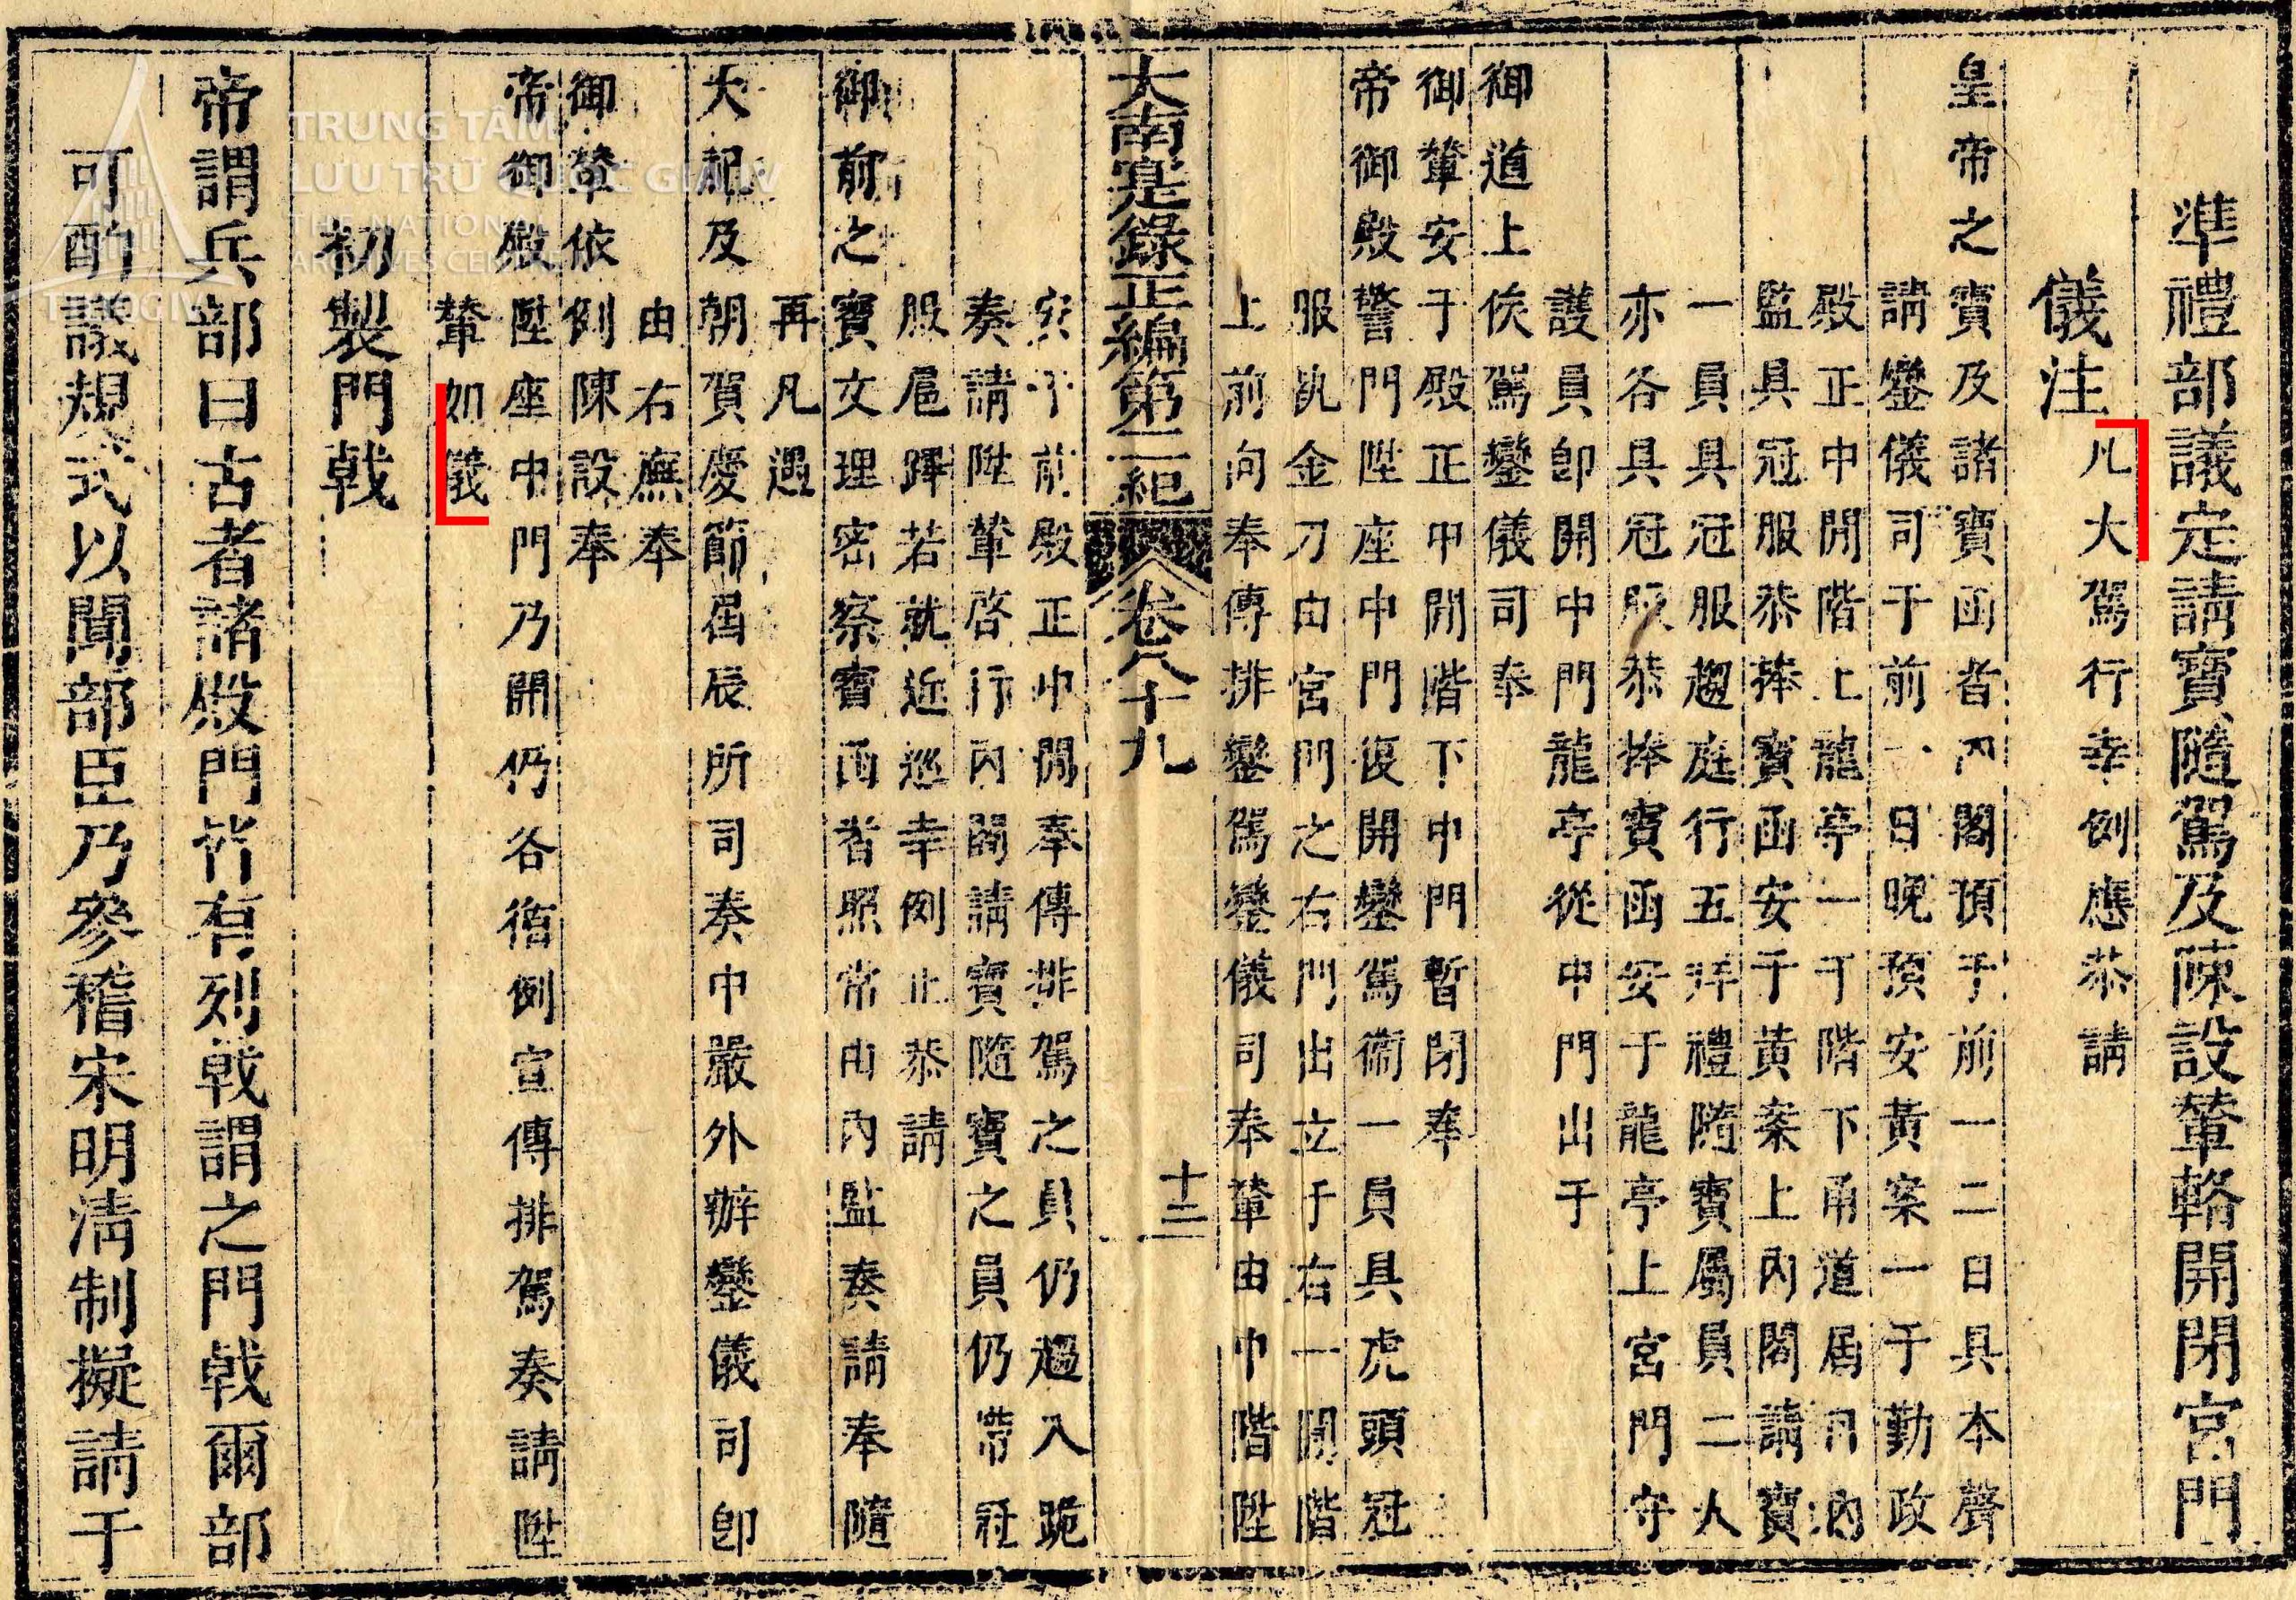 準禮部議定請寶隨駕及陳設輦輅開閉宮門
儀注
凡大駕行幸例應恭請
皇帝之寶及諸寶函者內閣預于前一二日具本聲
請鑾儀司于前一日晚預安黃案一于勤政
殿正中間階上龍亭一于階下甬道屆日內
監具冠服恭捧寶函安于黃案上內閣請寶
一員具冠服趨庭行五拜禮隨寶屬員二人
亦各具冠服恭捧寶函安于龍亭上宮門守
護員即開中門龍亭從中門出于
御道上俟駕鑾儀司奉
御輦安于殿正中間階下中門暫閉奉
帝御殿警門陞座中門復開鑾駕衛一員具虎頭冠
服執金刀由宮門之右門出立于右一間階
上前向奉傳排鑾駕鑾儀司奉輦由中階陞
大南寔錄正編第二紀
卷八十九
十三
于前殿正中間奉傳排駕之員仍趨入跪
奏請陞輦啓行內閣請寶隨寶之員仍常冠
服扈蹕若就近巡幸例止恭請
御前之寶文理密察寶函者照常由內監奏請奉隨
再凡遇
大祀及朝賀慶節屆辰所司奏中嚴外辦鑾儀司即
由右廡奉
御輦依例陳設奉
帝御殿陞座中門乃開仍各循例宣傳排駕奏請陞
輦如儀
初製門戟
帝謂兵部曰古者諸殿門皆有列戟謂之門戟爾部
可酌議規式以聞部臣乃參稽宋明淸制擬請于
TRUNG TÂM
LƯU TRỮ QUỐC GIA IV
THE NATIONAL
ARCHIVES CENTRE IV
TTLTQGIV